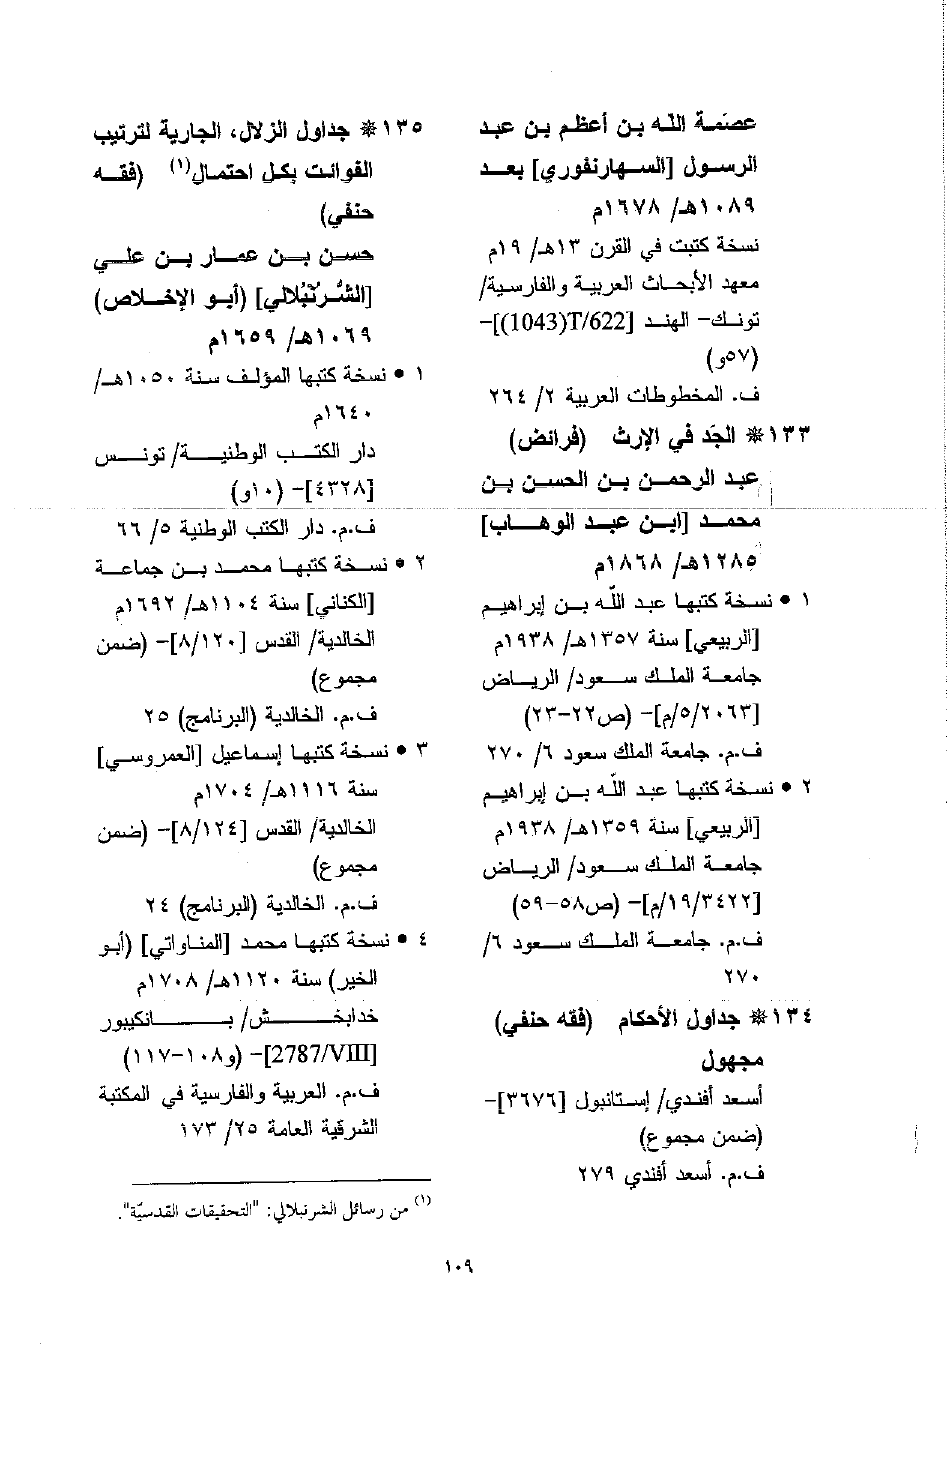 عصمة الله بن أعظم بن عبد
الرسول [السهارنفوري] بعد
١٠٨٩هـ/ ١٦٧٨م
نسخة كتبت في القرن ١٣هـ/ ١٩م
معهد الأبحاث العربية والفارسية/
تونك- الهند [T/622(1043)]-
(٥٧و)
ف. المخطوطات العربية ٢/ ٢٦٤
١٣٣* الجَد في الإرث (فرائض)
عبد الرحمن بن الحسن بن
محمد [ابن عبد الوهاب]
١٢٨٥هـ/ ١٨٦٨م
١ • نسخة كتبها عبد الله بن إبراهيم
[الربيعي] سنة ١٣٥٧هـ/ ١٩٣٨م
جامعة الملك سعود/ الرياض
[٥/٢٠٦٣/م]- (ص٢٢-٢٣)
ف.م. جامعة الملك سعود ٦/ ٢٧٠
٢ • نسخة كتبها عبد الله بن إبراهيم
[الربيعي] سنة ١٣٥٩هـ/ ١٩٣٨م
جامعة الملك سعود/ الرياض
[١٩/٣٤٢٢/م]- (ص٥٨-٥٩)
ف.م. جامعة الملك سعود ٦/
٢٧٠
١٣٤* جداول الأحكام (فقه حنفي)
مجهول
أسعد أفندي/ إستانبول [٣٦٧٦]-
(ضمن مجموع)
ف.م. أسعد أفندي ٢٧٩
١٣٥* جداول الزلال، الجارية لترتيب
الفوائت بكل احتمال(١) (فقه
حنفي)
حسن بن عمار بن علي
[الشُّرُنْبُلالي] (أبو الإخلاص)
١٠٦٩هـ/ ١٦٥٩م
١ • نسخة كتبها المؤلف سنة ١٠٥٠هـ/
١٦٤٠م
دار الكتب الوطنية/ تونس
[٤٣٢٨]- (١٠و)
ف.م. دار الكتب الوطنية ٥/ ٦٦
٢ • نسخة كتبها محمد بن جماعة
[الكناني] سنة ١١٠٤هـ/ ١٦٩٢م
الخالدية/ القدس [٨/١٢٠]- (ضمن
مجموع)
ف.م. الخالدية (البرنامج) ٢٥
٣ • نسخة كتبها إسماعيل [العمروسي]
سنة ١١١٦هـ/ ١٧٠٤م
الخالدية/ القدس [٨/١٢٤]- (ضمن
مجموع)
ف.م. الخالدية (البرنامج) ٢٤
٤ • نسخة كتبها محمد [المناواتي] (أبو
الخير) سنة ١١٢٠هـ/ ١٧٠٨م
خدابخش/ بانكيبور
[2787/VIII]- (و١٠٨-١١٧)
ف.م. العربية والفارسية في المكتبة
الشرقية العامة ٢٥/ ١٧٣
(١) من رسائل الشرنبلالي: "التحقيقات القدسيّة".
١٠٩